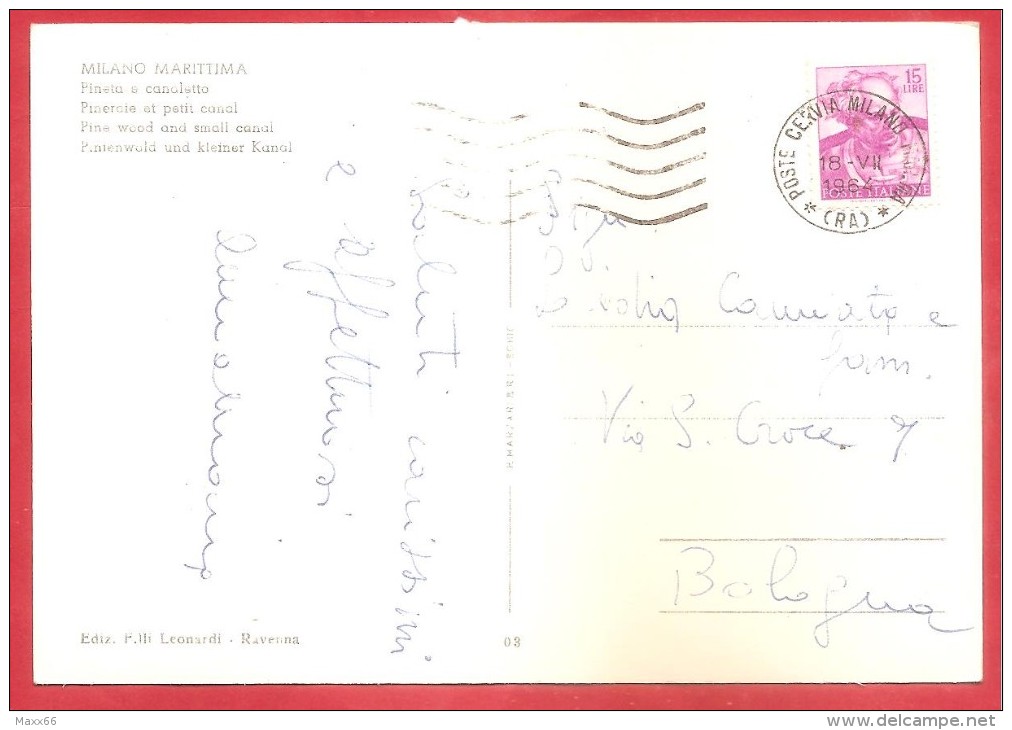 MILANO MARITTIMA
Pineta e canaletto
Pineraie et petit canal
Pine wood and small canal
Pinienwald und kleiner Kanal
15
LIRE
POSTE ITALIANE
POSTE CERVIA MILANO MAR.MA
18-VII
1964
* (RA) *
Saluti carissimi
e
affettuosi
e
fam.
Via S. Croce 7
Bologna
Ediz. F.lli Leonardi - Ravenna
03
Maxx66
www.delcampe.net